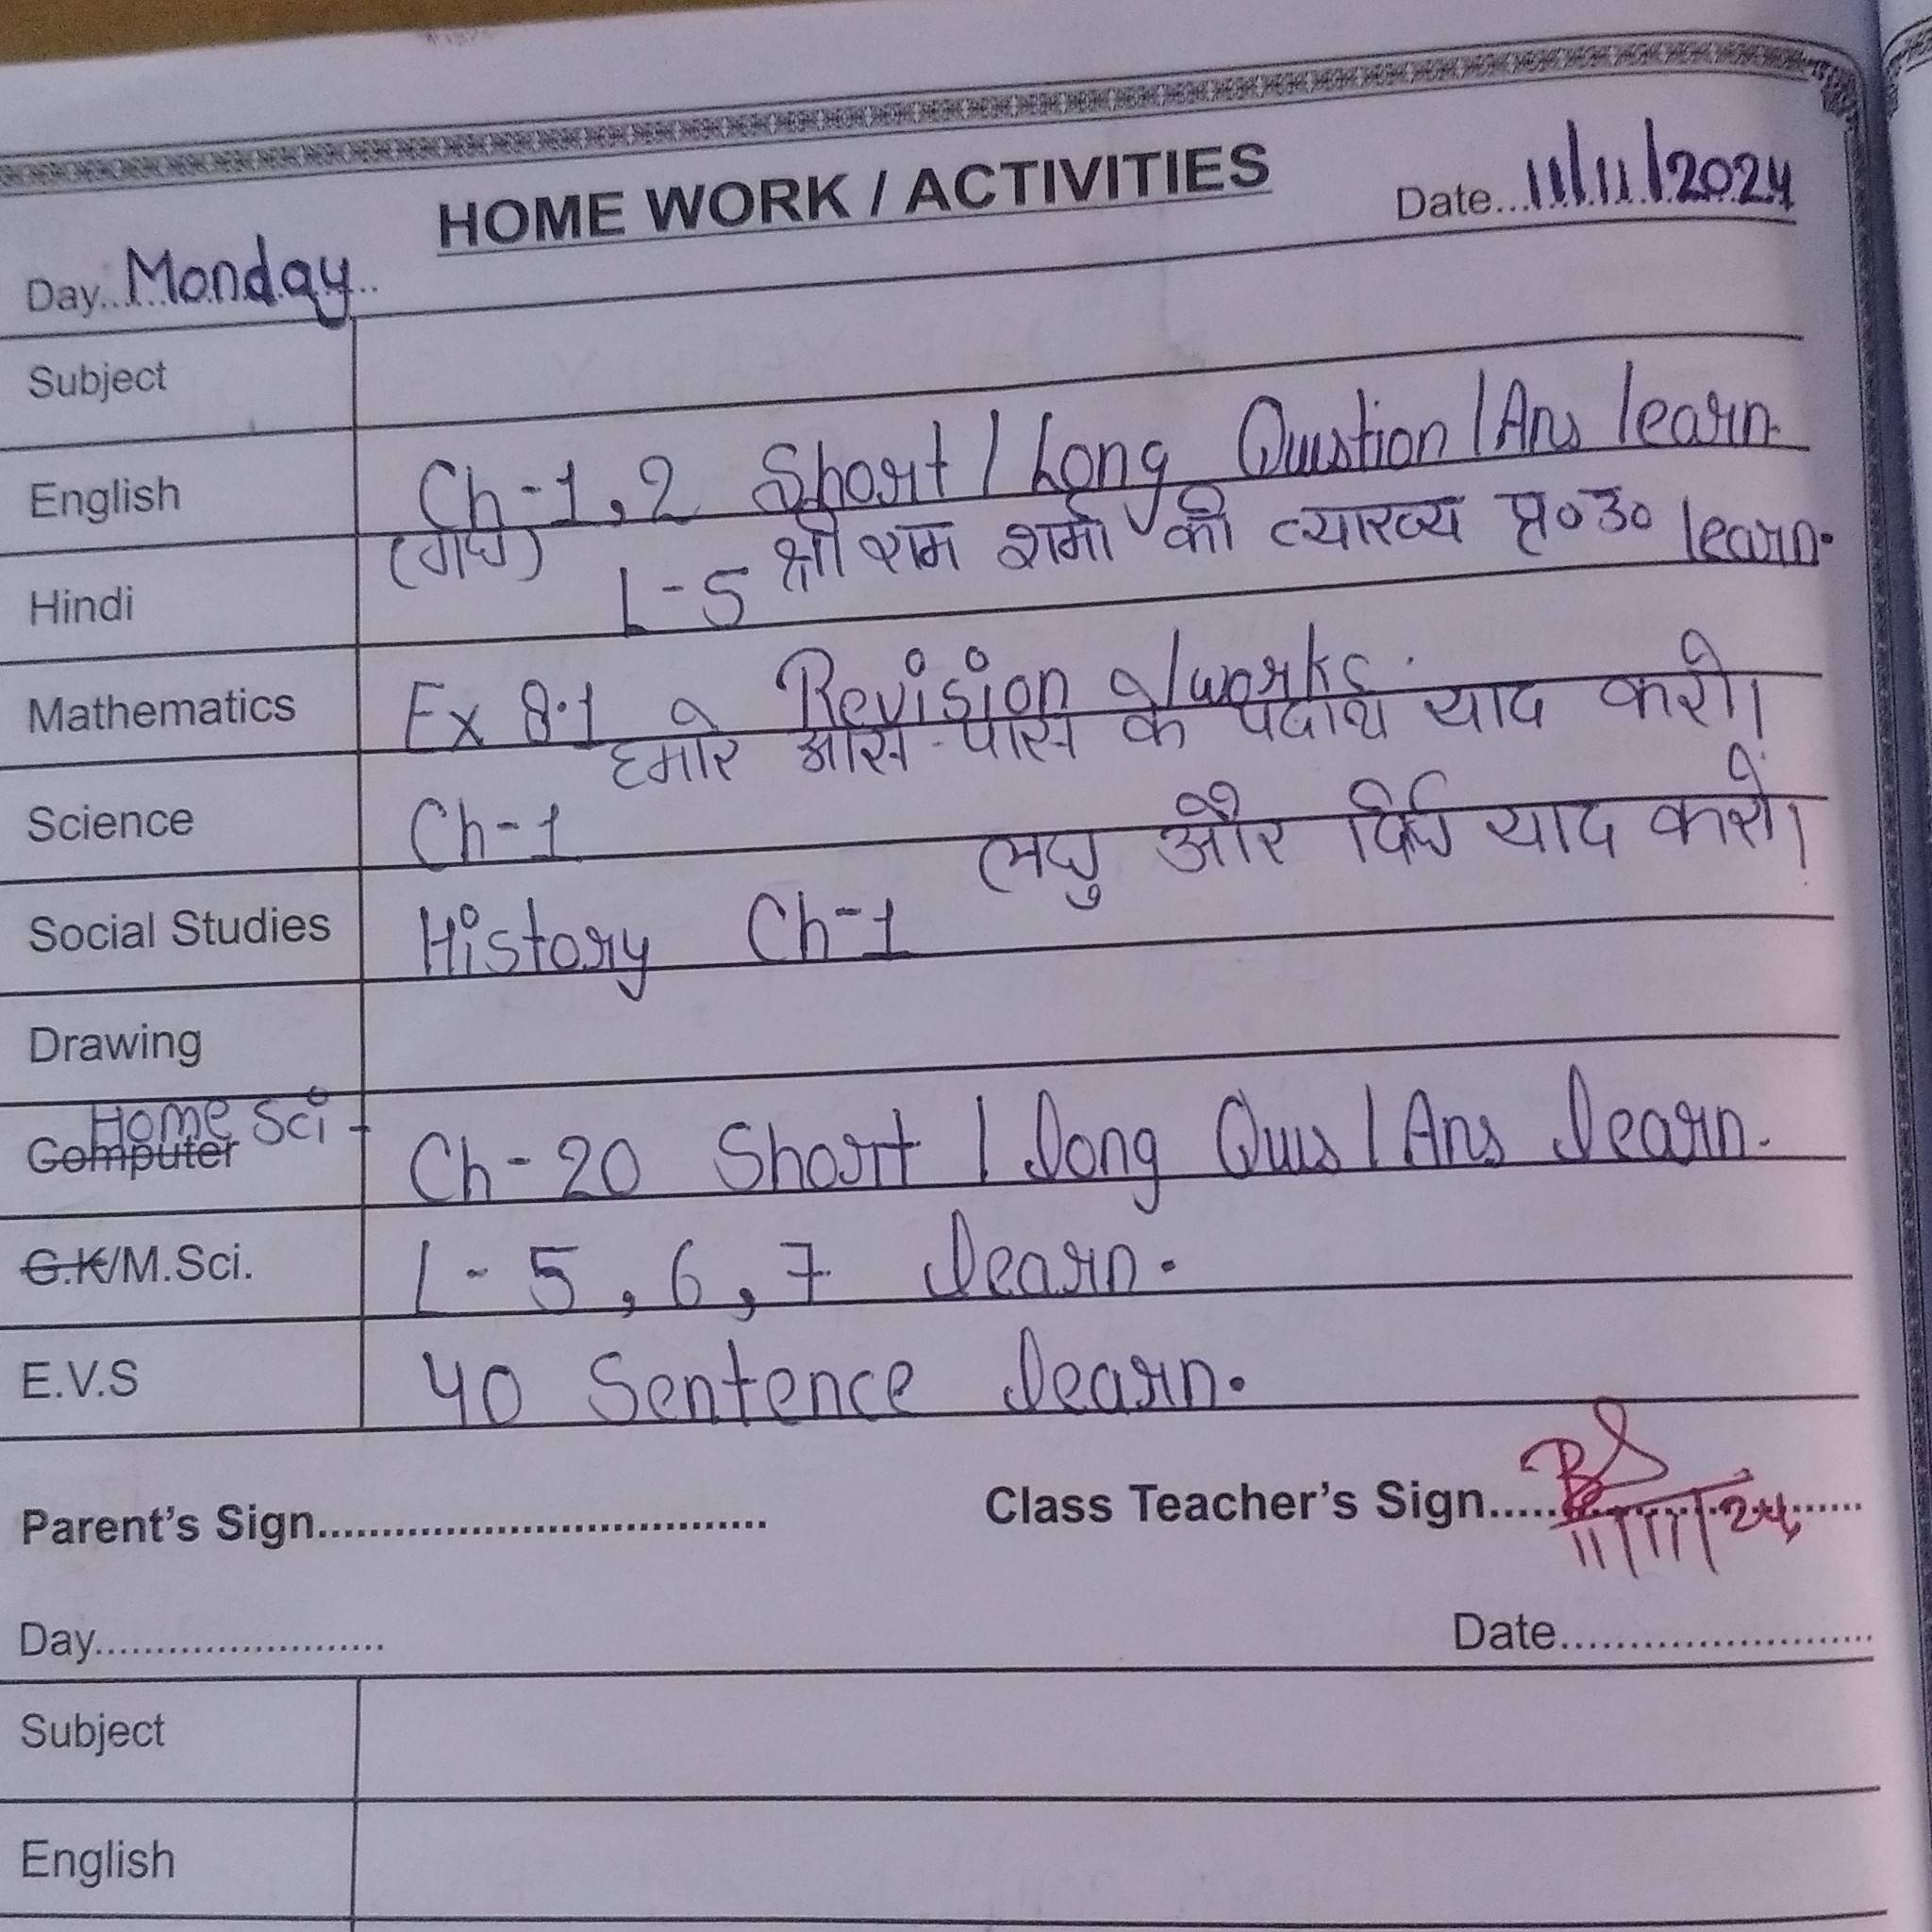 HOME WORK / ACTIVITIES
Date...11/11/2024
Day...Monday..
Subject
English Ch-1,2 Short / Long Qustion / Ans learn.
Hindi (गद्य) L-5 श्री राम शर्मा की व्याख्य प्र०उ० learn.
Mathematics Ex 8.1 Revision works.
Science Ch-1 हमारे आस-पास के पदार्थ याद करो।
Social Studies History Ch-1 लघु और दिर्घ याद करो।
Drawing
Home Sci
Computer Ch-20 Short / long Qus / Ans learn.
G.K/M.Sci. L-5,6,7 learn.
E.V.S 40 Sentence learn.
Parent's Sign................................... Class Teacher's Sign.....BS
11/11/24
Day........................ Date..........................
Subject
English